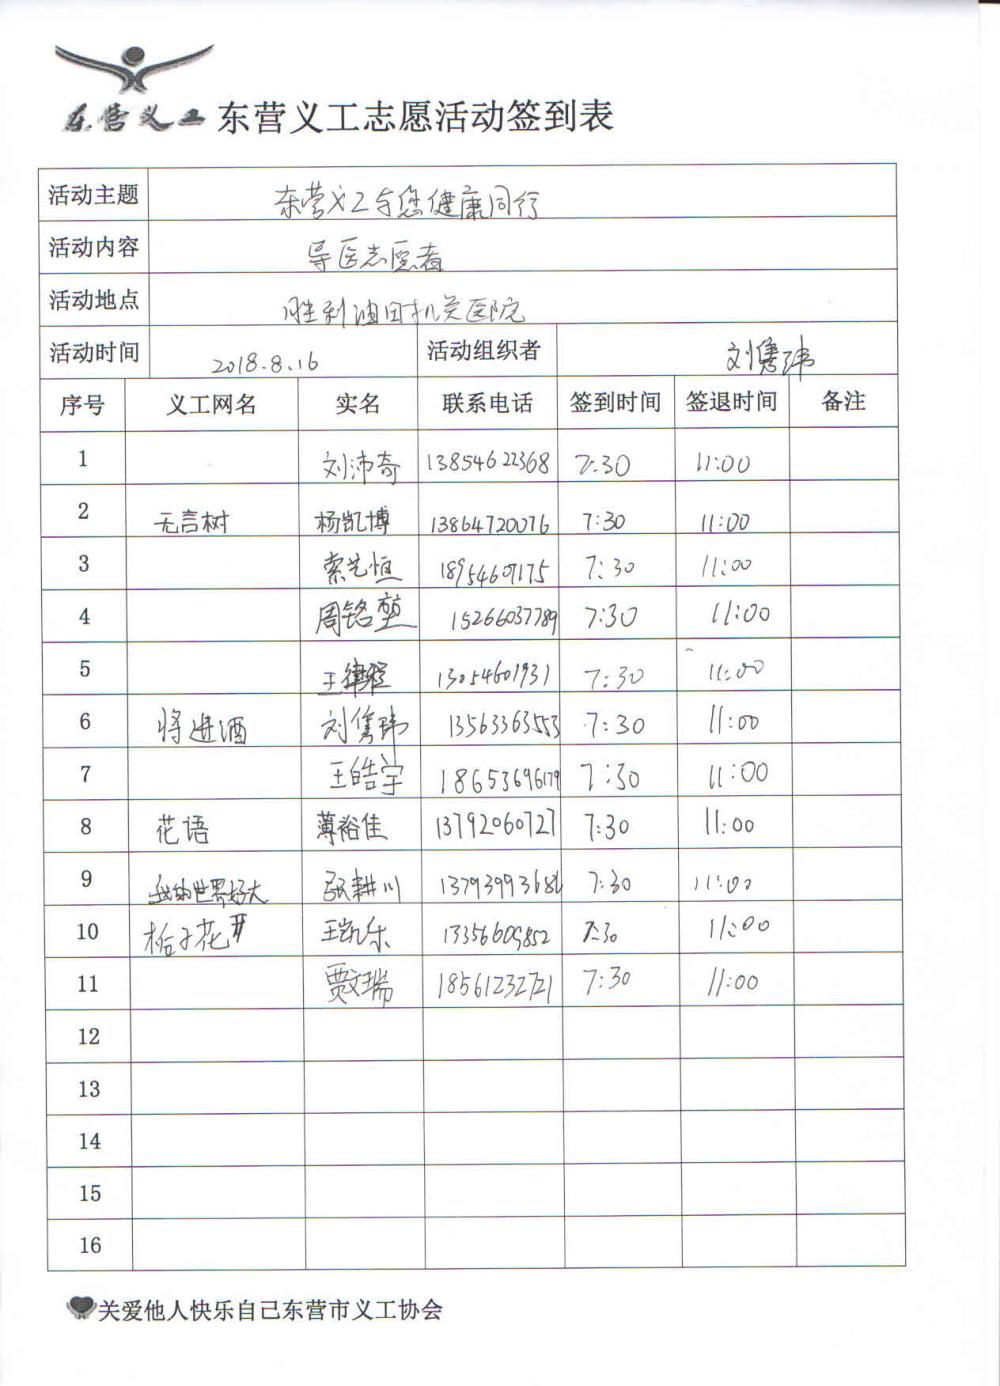 东营义工 东营义工志愿活动签到表
活动主题 东营义工与您健康同行
活动内容 导医志愿者
活动地点 胜利油田机关医院
活动时间 2018.8.16 活动组织者 刘隽玮
序号 义工网名 实名 联系电话 签到时间 签退时间 备注
1 刘沛奇 13854622368 7:30 11:00
2 无言树 杨凯博 13864720076 7:30 11:00
3 索艺恒 18954607175 7:30 11:00
4 周铭堃 15266037789 7:30 11:00
5 王 13054601931 7:30 11:00
6 将进酒 刘隽玮 13563363553 7:30 11:00
7 王皓宇 18653696179 7:30 11:00
8 花语 薄裕佳 13792060727 7:30 11:00
9 我的世界好大 张耕川 13793993682 7:30 11:00
10 栀子花开 王凯乐 13356609852 7:30 11:00
11 贾文瑞 18561232721 7:30 11:00
12
13
14
15
16
关爱他人快乐自己东营市义工协会